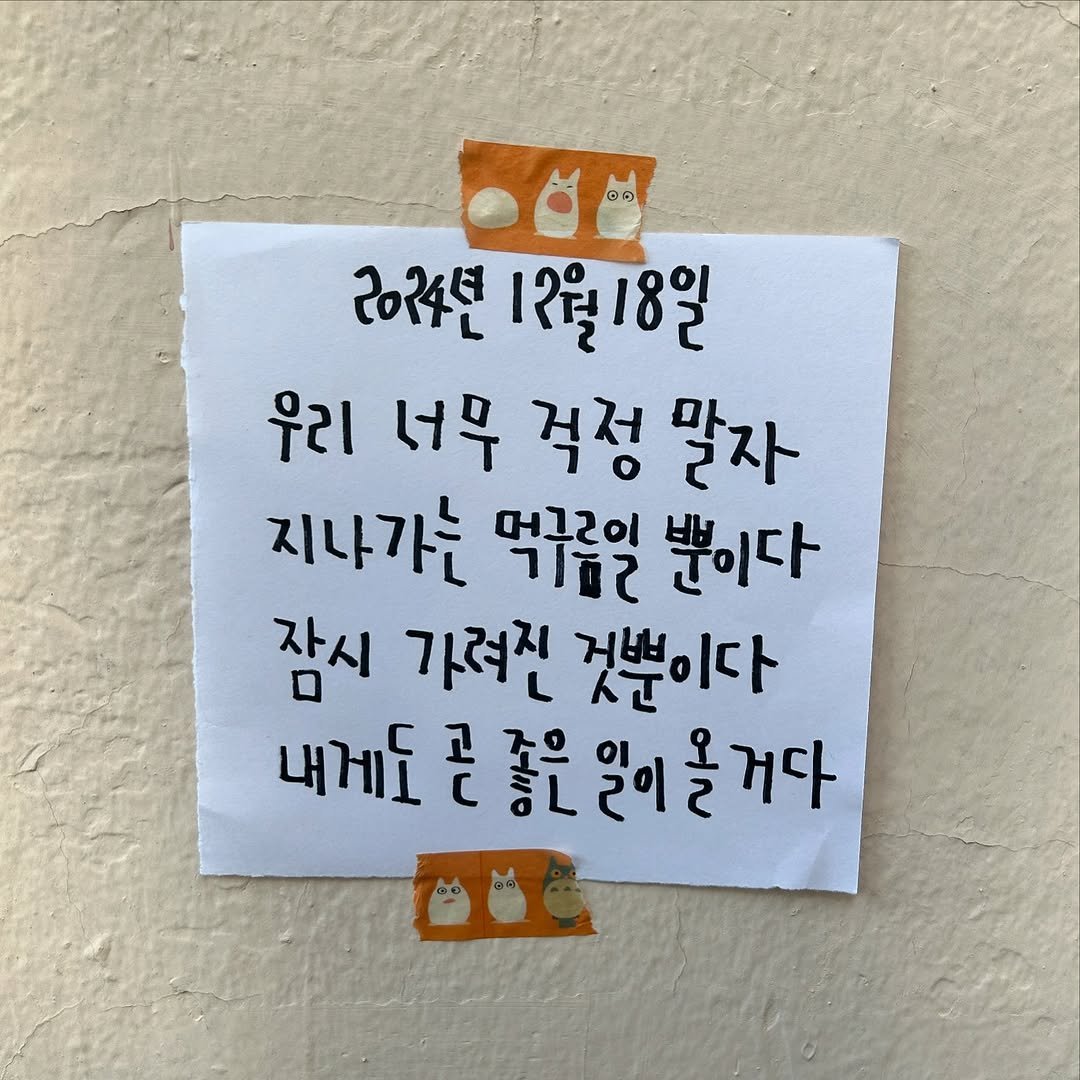 2024년 12월 18일
우리 너무 걱정 말자
지나가는 먹구름일 뿐이다
잠시 가려진 것뿐이다
내게도 곧 좋은 일이 올 거다